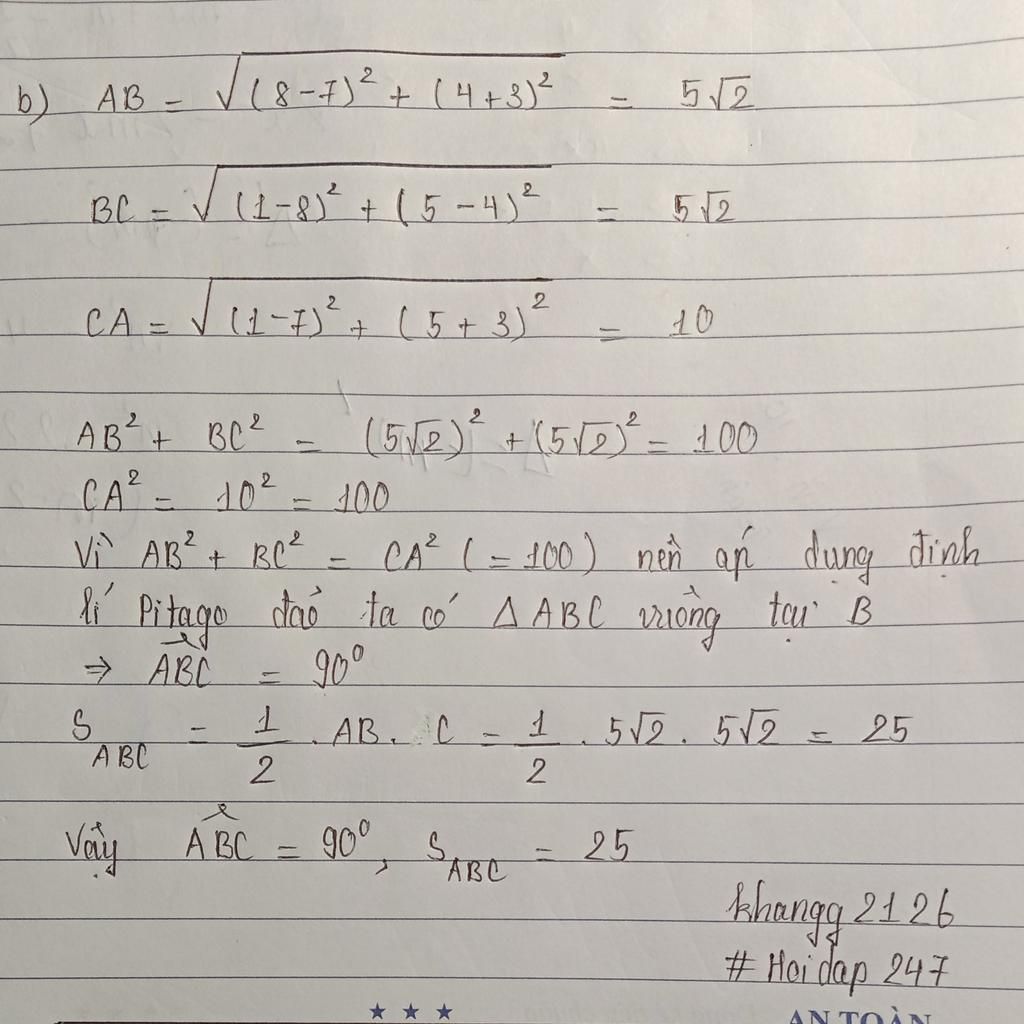 b) AB = √((8-7)² + (4+3)²) = 5√2
BC = √((1-8)² + (5-4)²) = 5√2
CA = √((1-7)² + (5+3)²) = 10
AB² + BC² = (5√2)² + (5√2)² = 100
CA² = 10² = 100
Vì AB² + BC² = CA² (=100) nên áp dụng định
lí Pitago đảo ta có Δ ABC vuông tại B
⇒ ABC^ = 90⁰
S_ABC = 1/2 . AB. C = 1/2 . 5√2 . 5√2 = 25
Vậy ABC^ = 90⁰, S_ABC = 25
khangg 2126
# Hoidap 247
★ ★ ★ AN TOÀN